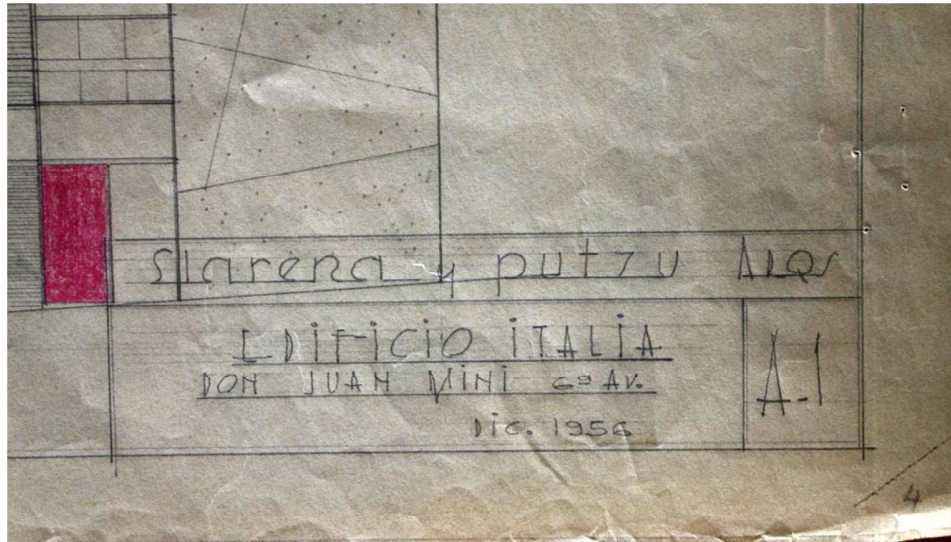 Slarena y putzu ARQS
EDIFICIO ITALIA
DON JUAN MINI 6ª AV.
DIC. 1956
A-1
4